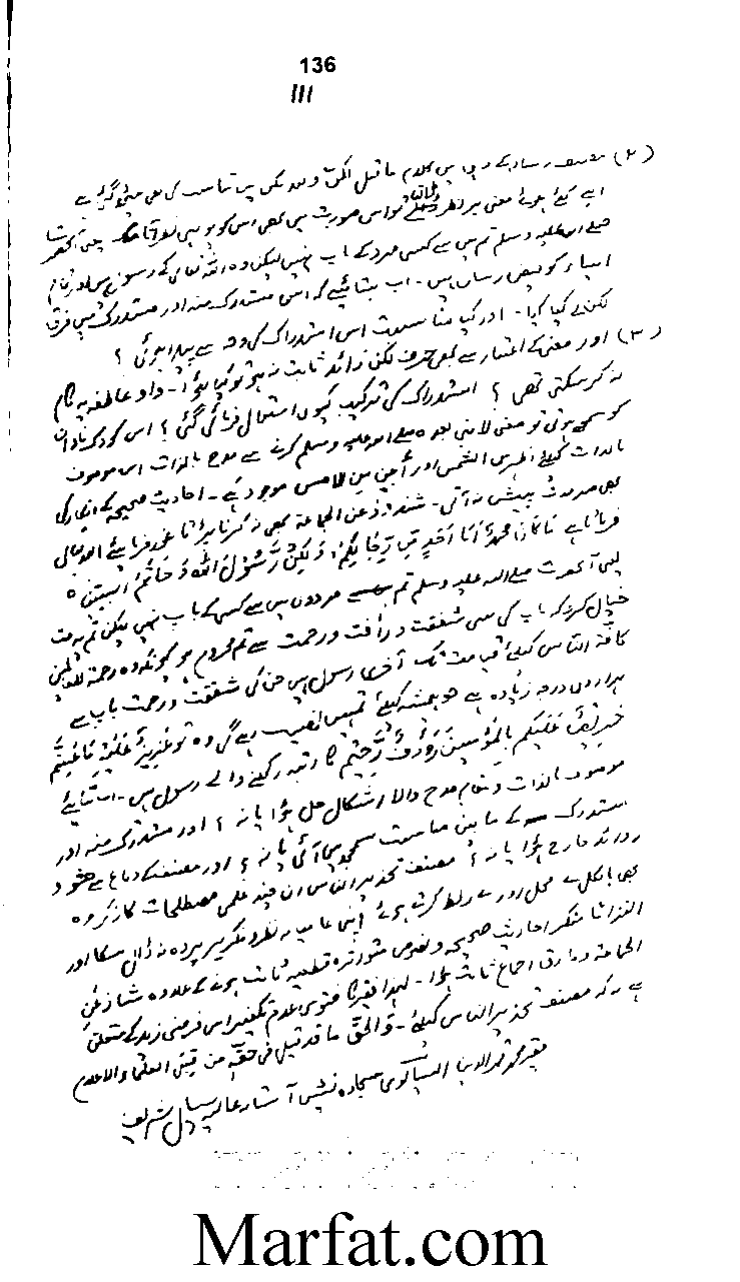 136
111
(۲) رسالہ کے میں کلام ماقبل لکن و بعد لکن میں تناسب کی
اپنے کئے ہوئے معنی پر نظر ڈالئے تو اس صورت میں بھی اس کو یوں ہی یعنی آنحضرت
صلے اللہ علیہ وسلم تم میں سے کسی مرد کے باپ نہیں لیکن وہ اللہ تعالی کے رسول ہیں اور تمام
انبیاء کو فیض رساں ہیں۔ اب بتائیے کہ اس مستدرک منہ اور مستدرک میں فرق
لکن نے کیا کیا۔ اور کیا مناسبت اس استدراک کی وجہ سے پیدا ہوئی ؟
(۳) اور معنی کے اعتبار سے بھی حرف لکن زائد ثابت نہ ہو تو کیا ہوا۔ واو عاطفہ یہ کام
نہ کر سکتی تھی ؟ استدراک کی ترکیب کیوں استعمال فرمائی گئی ؟ اس کو
تو معنی لا نبی بعدہ صلے اللہ علیہ وسلم کرنے سے مدح بالذات اس موصوف
بالذات کیلئے اظہر من الشمس اور أبین من الامس موجود ہے۔ احادیث صحیحہ کے انکار کی
بھی ضرورت پیش نہ آتی۔ شذوذ عن الجماعۃ بھی نہ کرنا پڑتا غور فرمائیے اللہ تعالی
فرماتا ہے مَا كَانَ مُحَمَّدٌ أَبَا أَحَدٍ مِّن رِّجَالِكُمْ وَلَٰكِن رَّسُولَ اللَّهِ وَخَاتَمَ النَّبِيِّينَ ہ
یعنی آنحضرت صلے اللہ علیہ وسلم تم مردوں میں سے کسی کے باپ نہیں لیکن تم یہ مت
خیال کرنا کہ باپ کی سی شفقت و رأفت و رحمت سے تم محروم ہو کیونکہ وہ رحمۃ للعالمین
کافۃ الناس کیلئے قیامت تک آخری رسول ہیں جن کی شفقت و رحمت باپ سے
ہزاروں درجہ زیادہ ہے جو ہمیشہ کیلئے تمہیں نصیب رہے گی وہ تو عَزِيزٌ عَلَيْهِ مَا عَنِتُّمْ
حَرِيصٌ عَلَيْكُم بِالْمُؤْمِنِينَ رَءُوفٌ رَّحِيمٌ کا رتبہ رکھنے والے رسول ہیں۔ اب بتائیے
موصوف بالذات و مقام مدح والا اشکال حل ہوا یا نہ ؟ اور مستدرک منہ اور
مستدرک کے مابین مناسبت سمجھ میں آئی یا نہ ؟ اور مصنف کے دماغ سے حشو و
زوائد خارج ہوا یا نہ ؟ مصنف تحذیر الناس ان چند علمی مصطلحات کا ذکر وہ
بھی بالکل بے محل اور بے ربط کرتے ہوئے اپنی عامیانہ نظر و فکر پر پردہ نہ ڈال سکا اور
التزاماً منکر احادیث صحیحہ و نصوص متواترہ قطعیہ ثابت ہونے کے علاوہ شاذ عن
الجماعۃ و فارق اجماع ثابت ہوا۔ لہذا فقیر کا فتوی عدم تکفیر اس فرضی زید کے متعلق
ہے نہ کہ مصنف تحذیر الناس کیلئے۔ وَالحَقّ ما قد قیل فی حقّہ من قبل العلماء الاعلام
فقیر محمد قمر الدین السیالوی سجادہ نشین آستانہ عالیہ سیال شریف
Marfat.com